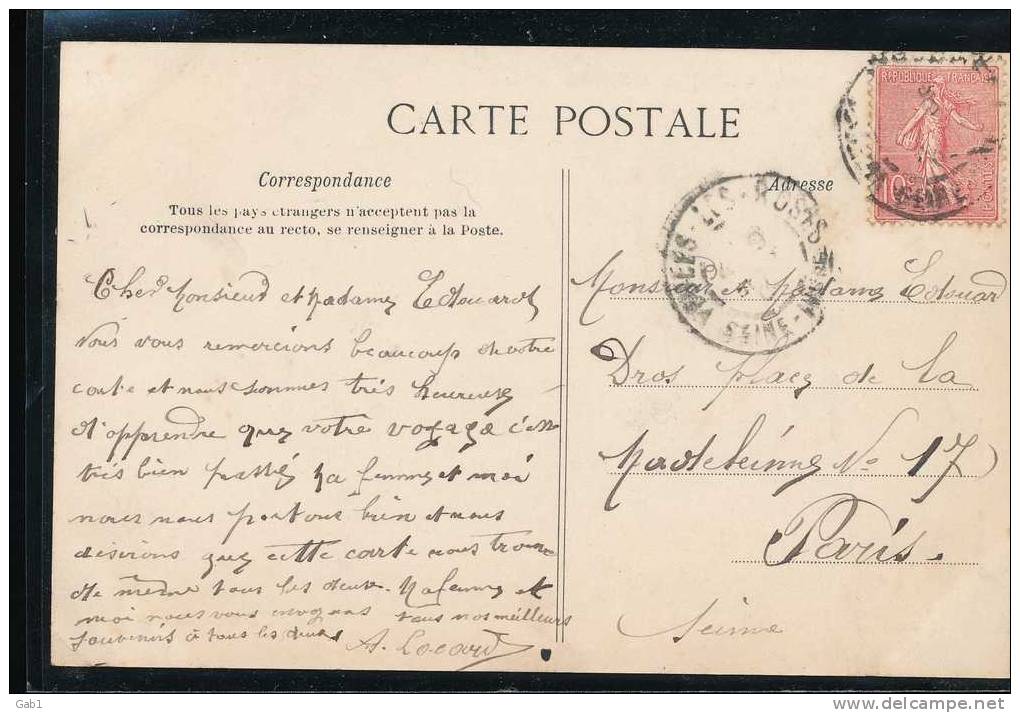 CARTE POSTALE
Correspondance
Tous les pays étrangers n'acceptent pas la
correspondance au recto, se renseigner à la Poste.
Cher Monsieur et Madame Edouard
Nous vous remercions beaucoup de votre
carte et nous sommes très heureuse
d'apprendre que votre vogage c'est
très bien passé Ma femme et moi
nous nous portons bien et nous
désirons que cette carte vous trouve
de même tous les deux. Ma femme et
moi nous vous envoyons tous nos meilleurs
souvenirs à tous les deux
A. Locard
Adresse
REPUBLIQUE FRANÇAISE
10
-LES-ROSES
SEINE
Monsieur et Madame Edouard
Dros place de la
Madeleine No 17
Paris.
Seine
Gab1
www.delcampe.net